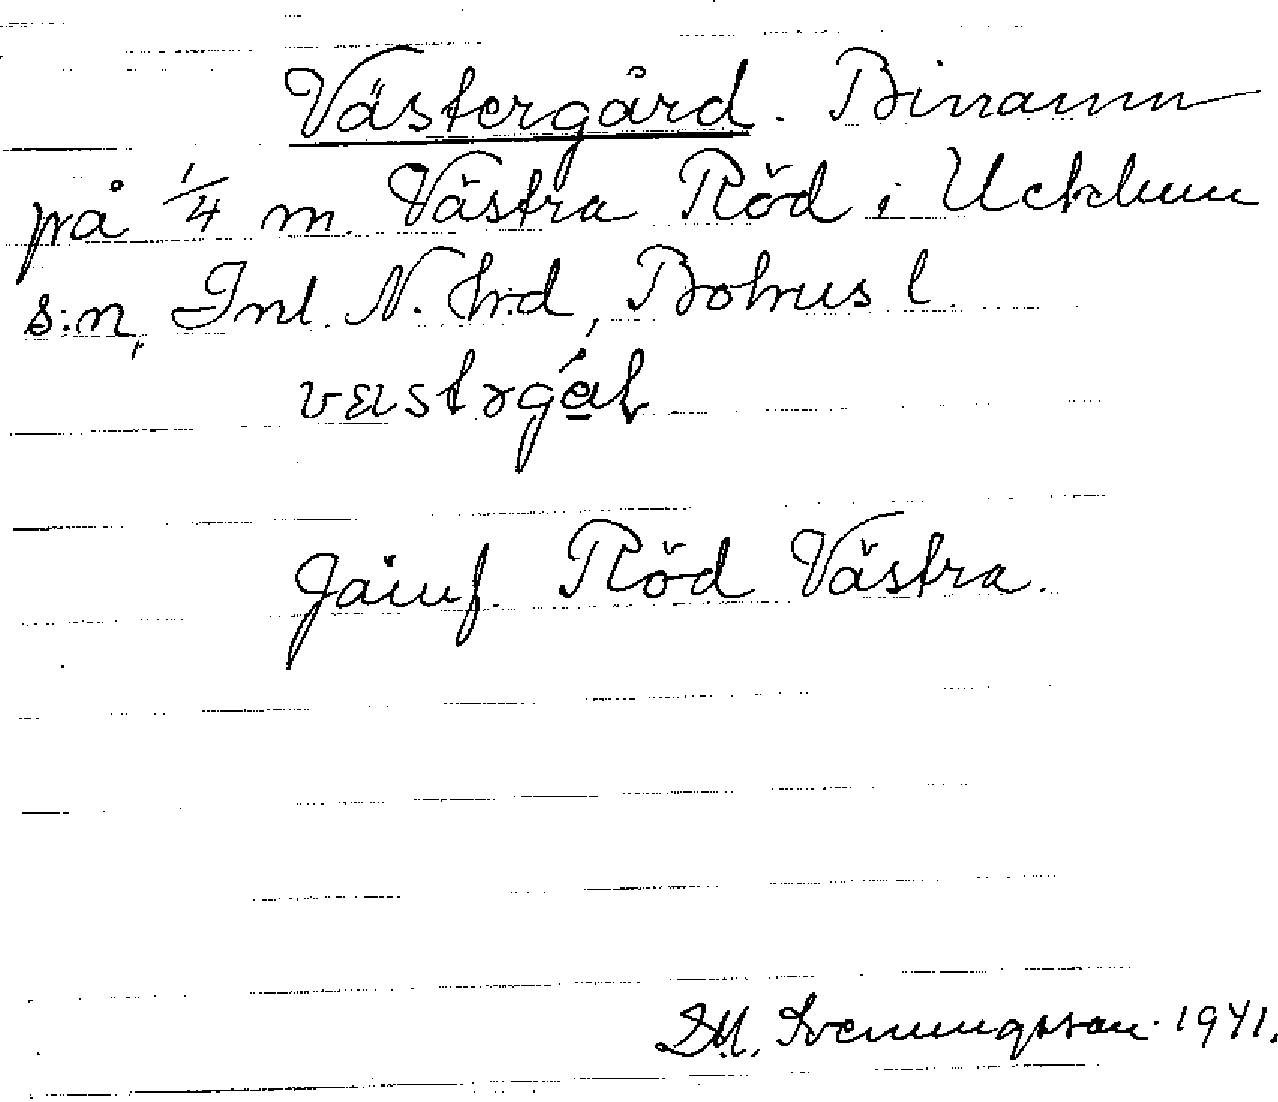 Västergård. Binamn
på 1/4 m. Västra Röd i Ucklum
s:n, Inl. N. hd, Bohus l.
Jämf. Röd Västra.
D.M. Svenungsson 1941.